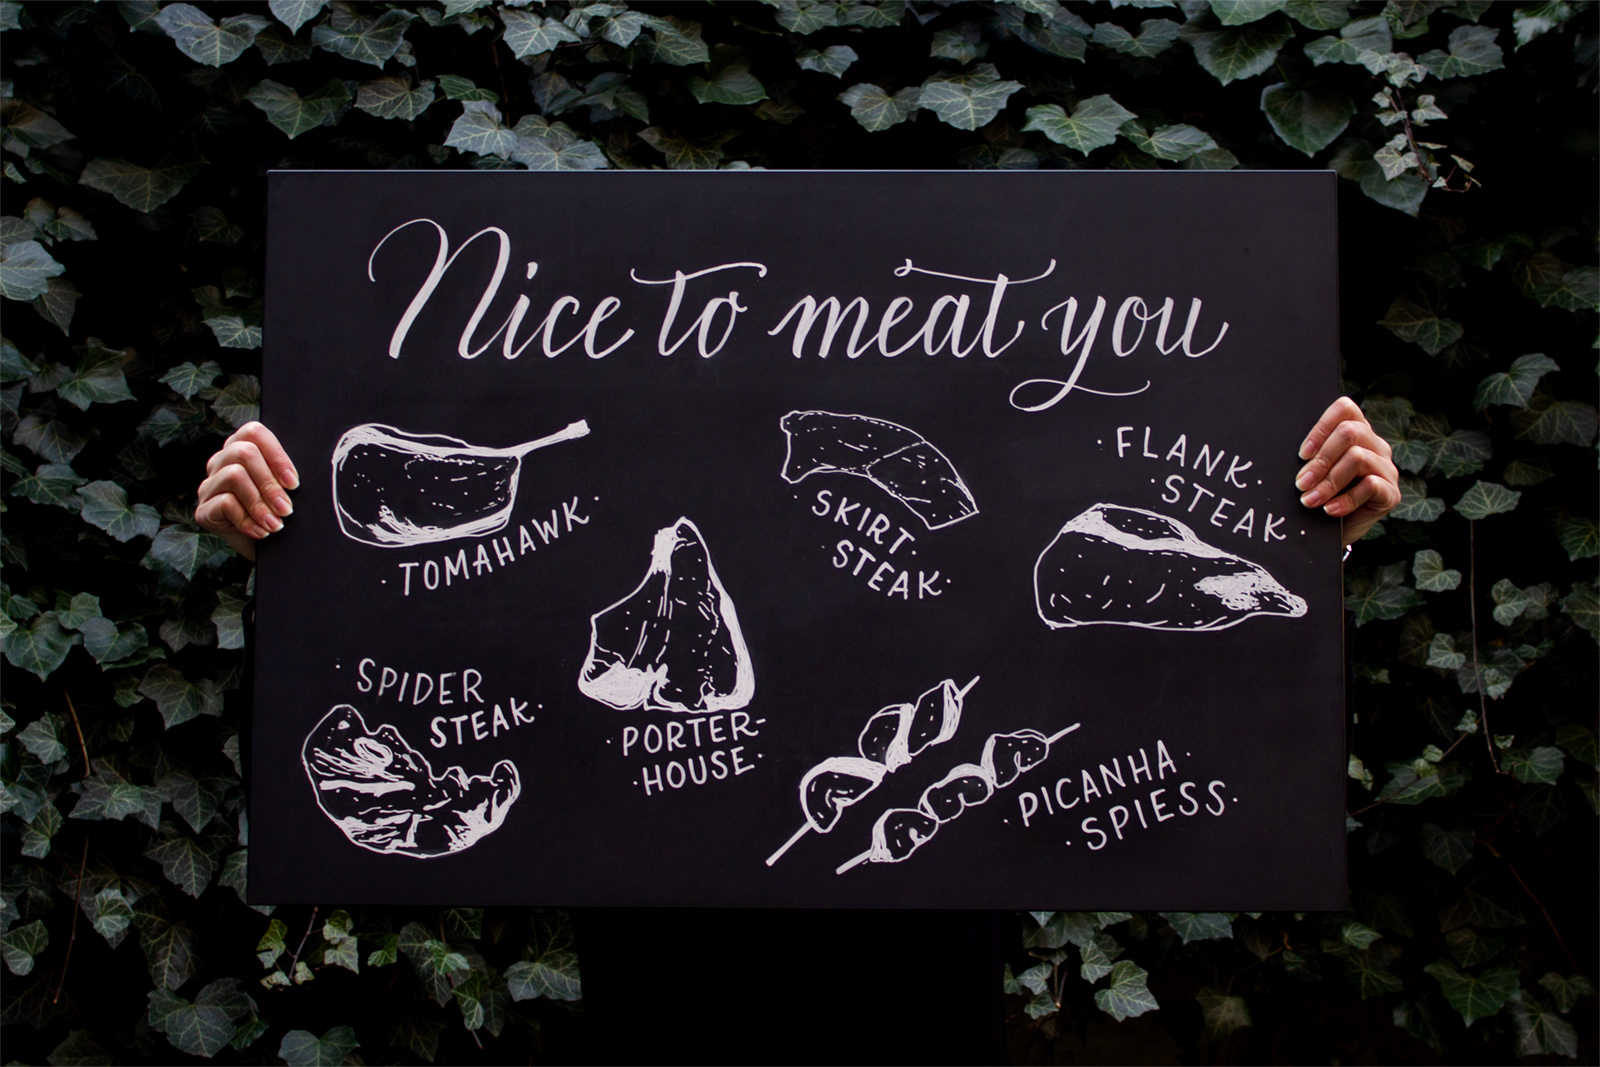 Nice to meat you
TOMAHAWK
SKIRT
STEAK
FLANK
STEAK
SPIDER
STEAK
PORTER-
HOUSE
PICANHA
SPIESS